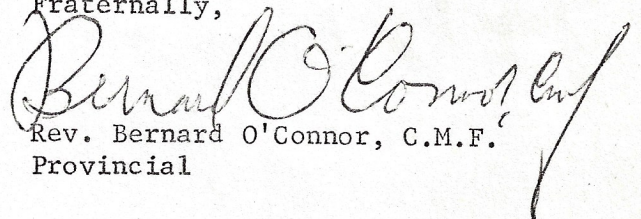 Fraternally,
Bernard O'Connor, cmf
Rev. Bernard O'Connor, C.M.F.
Provincial